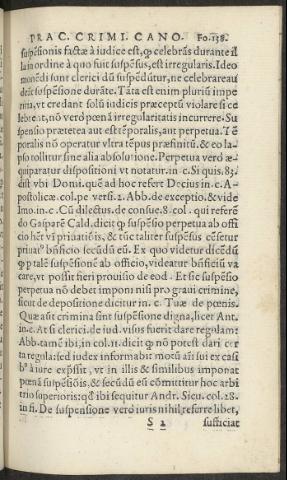 PRAC. CRIMI. CANO. Fo.138.
suspẽsionis factæ à iudice est, ꝙ celebrãs durante il
la in ordine à quo fuit suspẽsus, est irregularis. Ideo
monẽdi sunt clerici dũ suspẽdũtur, ne celebrare au
deãt suspẽsione durãte. Tãta est enim pluriũ impe
ritia, vt credant solũ iudicis præceptũ violare si ce
lebrent, nõ verò pœnã irregularitatis incurrere. Su
spensio prætetea aut est tẽporalis, aut perpetua. Tẽ
poralis nõ operatur vltra tẽpus præfinitũ, & eo la-
pso tollitur sine alia absolutione. Perpetua verò æ-
quiparatur dispositioni vt notatur. in c. Si quis. 83.
dist vbi Domi. quẽ ad hoc refert Decius in. c. A-
postolicæ. col. pe versi. 2. Abb. de exceptio. & vide
Imo. in c. Cũ dilectus. de consue. 8. col. qui referẽ
do Gasparẽ Cald. dicit ꝙ suspẽsio perpetua ab offi
cio hẽt vĩ priuatiõis, & tũc taliter suspẽsus cẽsetur
priuat⁹ bñficio secũdũ eũ. Ex quo videtur dicẽdũ
ꝙ p talẽ suspẽsionẽ ab officio, videatur bñficiũ va
care, vt possit fieri prouisio de eod. Et sic suspẽsio
perpetua nõ debet imponi nisi pro graui crimine,
sicut de depositione dicitur in. c. Tuæ de pœnis.
Quæ aũt crimina sint suspẽsione digna, licet Ant.
in. c. At si clerici. de iud. visus fuerit dare regulam:
Abb. tamẽ ibi, in col. 11. dicit ꝙ nõ potest dari cer
ta regula: sed iudex informabit motũ aĩ sui ex casi
b⁹ à iure exp̃ssit, vt in illis & similibus imponat
pœnã suspẽsiõis, & secũdũ eũ cõmittitur hoc arbi
trio superioris: qđ ibi sequitur Andr. Sicu. col. 28.
in fi. De suspensione verò iuris nihil referre libet,
S 2 sufficiat